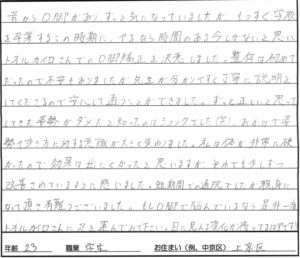 昔からO脚があり、ずっと気になっていましたが、もうすぐ学校
を卒業するこの時期に、やるなら時間のある今しかないと思い、
トオルカイロさんでのO脚矯正を決意しました。整体は初めて
だったので不安もありましたが、先生が分かりやすく丁寧に説明を
してくださるので安心して通うことができました。ずっと正しいと思って
してきた姿勢がダメだと知ったのはショックでした(笑)。おかげで姿
勢や歩き方に対する意識が大きく変わりました。私は体が非常に硬
かったので効果は出にくかったと思いますが、それでも少しずつ
改善されているように感じました。短期間での通院でしたが親身に
なって頂き有難うございました。もしO脚で悩んでいるなら是非一度
トオルカイロさんに足を運んでみて下さい。目に見える変化が
年齢 23 職業 学生 お住まい(例、中京区) 上京区